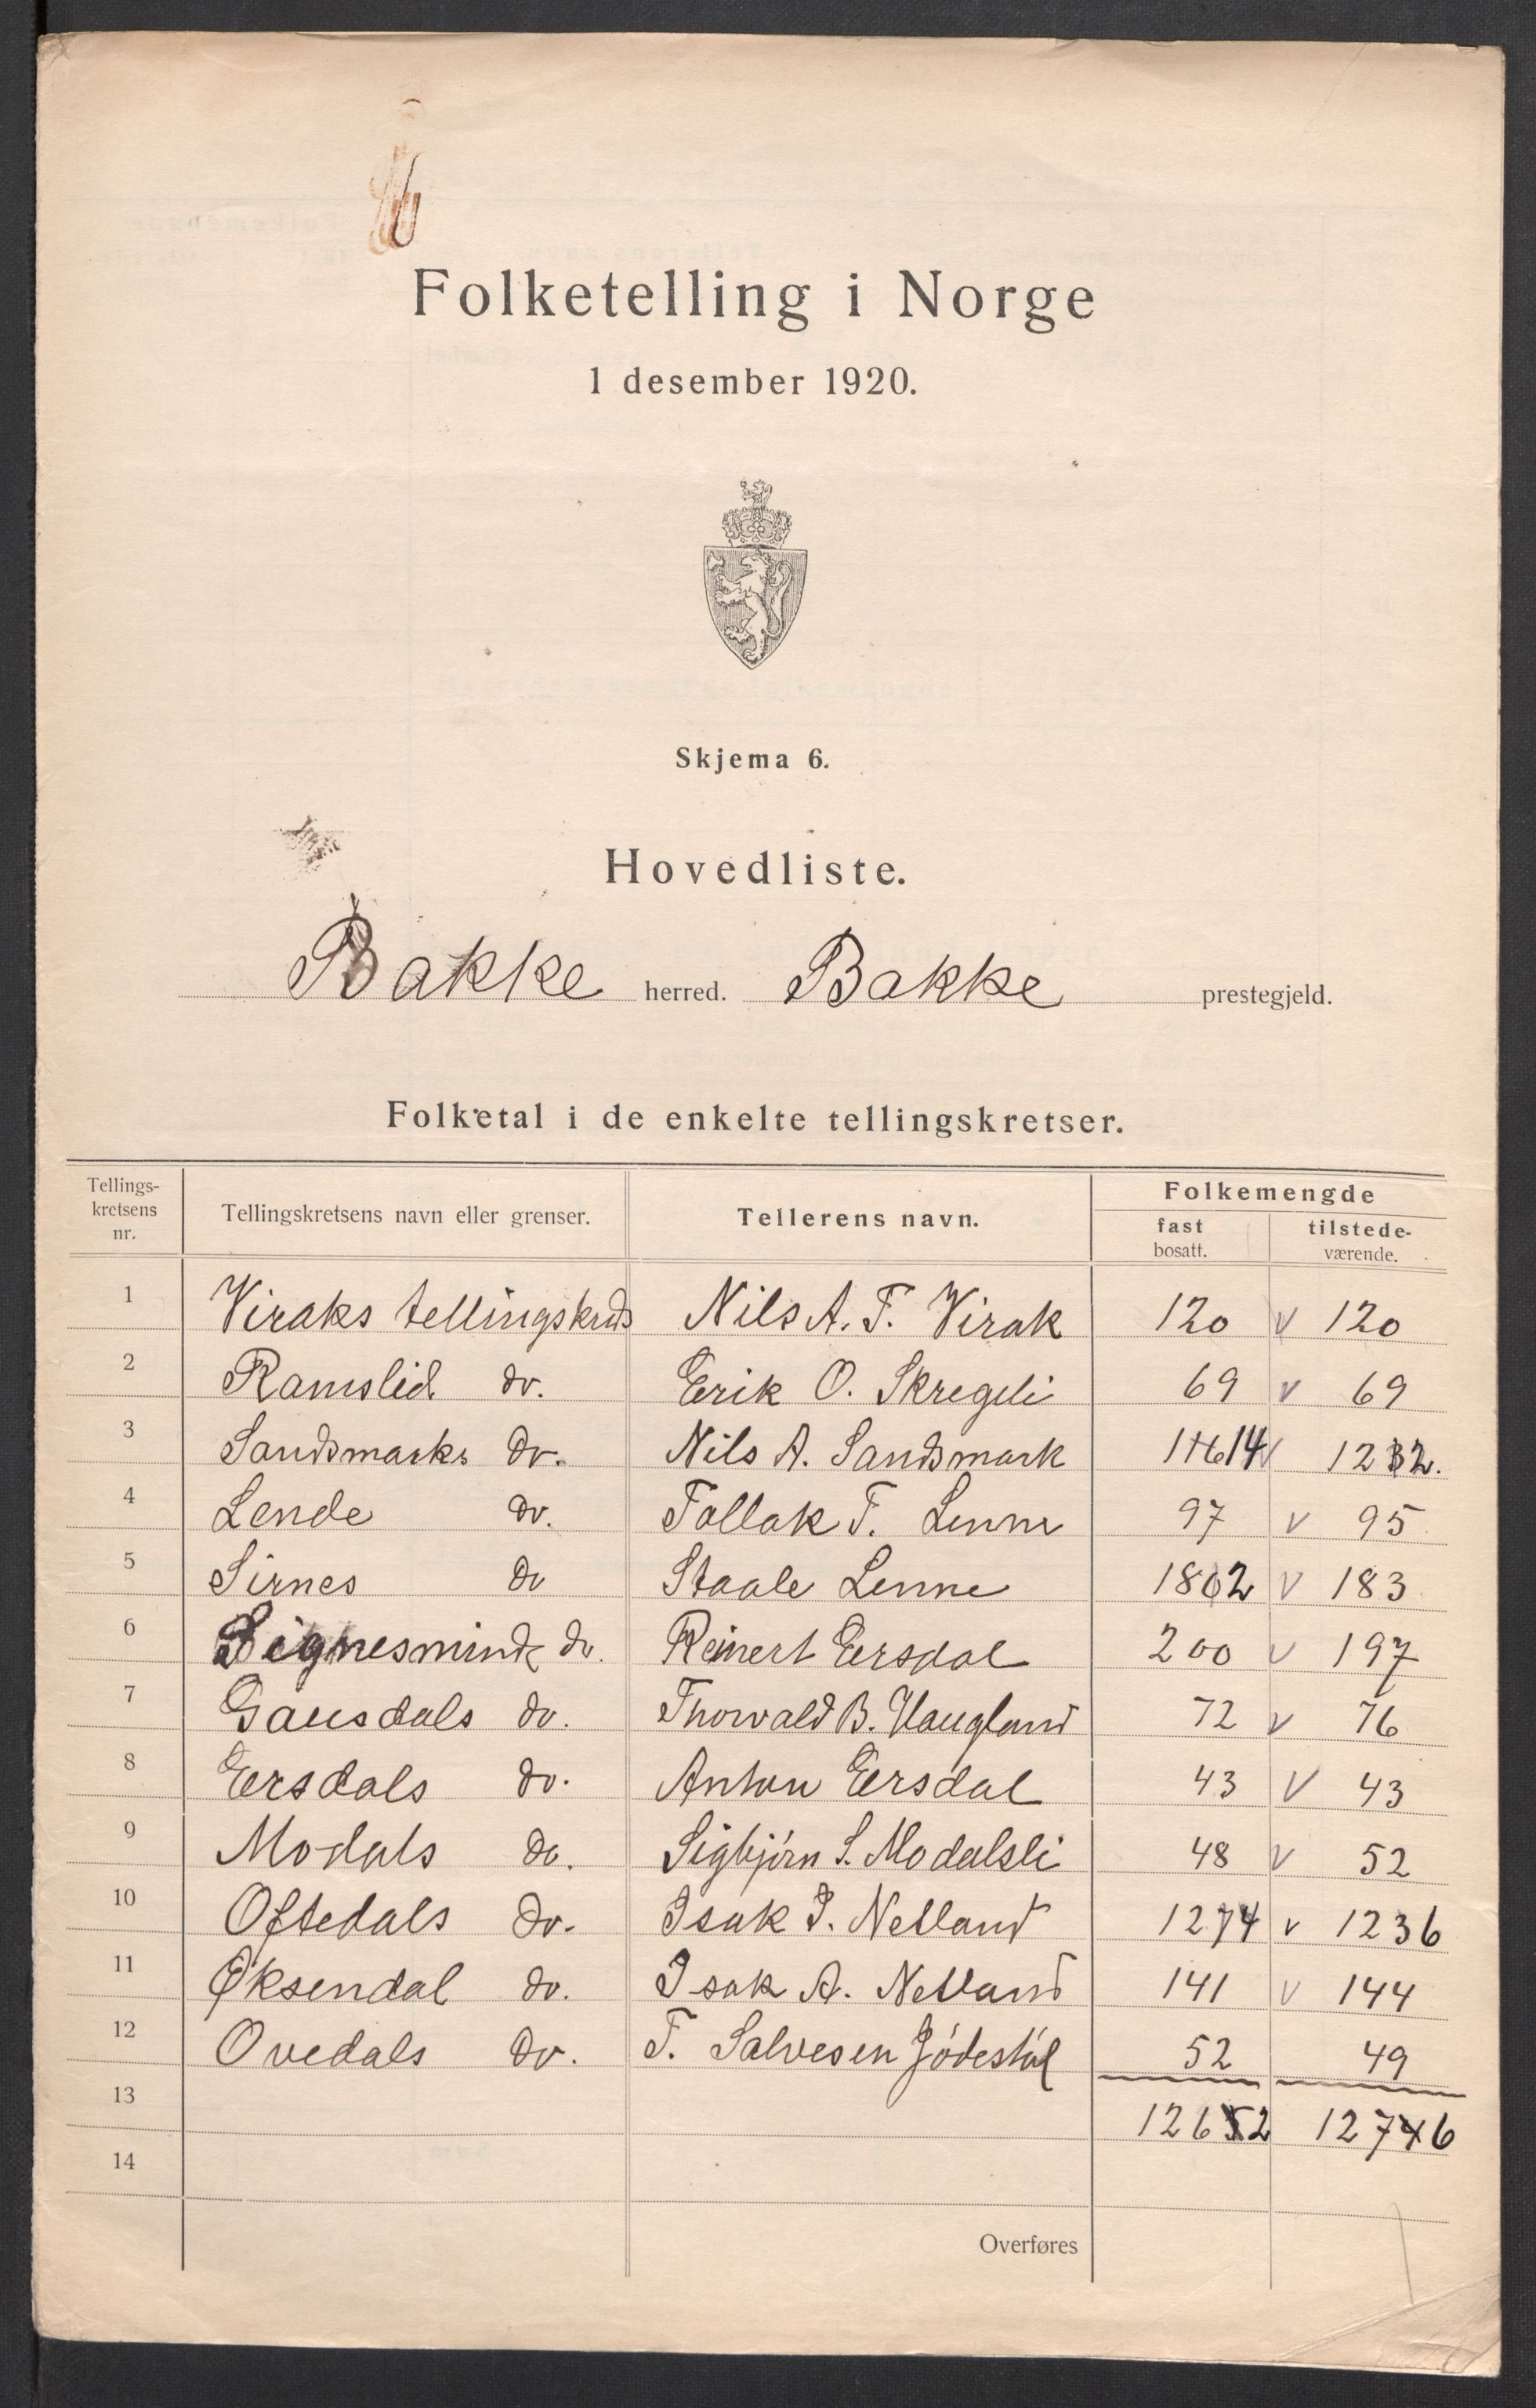 Folketelling i Norge
1 desember 1920.
Skjema 6.
Hovedliste.
Bakke herred. Bakke prestegjeld.
Folketal i de enkelte tellingskretser.
Tellings-
kretsens
nr.
Tellingskretsens navn eller grenser.
Tellerens navn.
Folkemengde
fast
bosatt.
tilstede-
værende.
1 Viraks tellingskrds Nils A. T. Virak 120 v 120
2 Ramslid do. Erik O. Skregeli 69 v 69
3 Sandsmarks do. Nils A. Sandsmark 114 v 122.
4 Lende do. Tollak T. Lenne 97 v 95
5 Sirnes do Staale Lenne 182 v 183
6 Signesminde do. Reinert Eersdal 200 v 197
7 Gausdals do. Thorvald B. Haugland 72 v 76
8 Eersdals do. Anton Eersdal 43 v 43
9 Modals do. Sigbjørn S. Modalsli 48 v 52
10 Oftedals do. Isak I. Netland 124 v 126
11 Øksendal do. Isak A. Netland 141 v 144
12 Ovedals do. T. Salvesen Jødestøl 52 49
13 1262 1276
14
Overføres